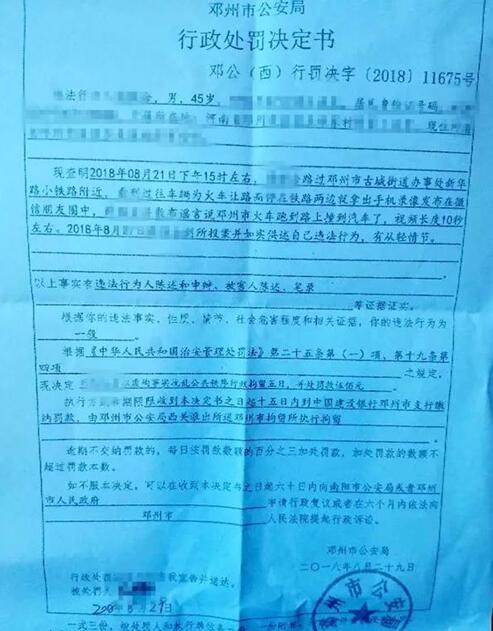 邓州市公安局
行政处罚决定书
邓公（西）行罚决字〔2018〕11675号
违法行 男，45岁， 居民身份证号码
河南省邓州 村 现住
现查明2018年08月21日下午15时左右， 路过邓州市古城街道办事处新华
路小铁路附近，看到过往车辆为火车让路而停在铁路两边就拿出手机录像发布在微
信朋友圈中， 散布谣言说邓州市火车跑到路上撞到汽车了，视频长度10秒
左右。2018年8月27日 到所投案并如实供述自己违法行为，有从轻情节。
以上事实有违法行为人陈述和申辩、被害人陈述、笔录
等证据证实。
根据你的违法事实、性质、情节、社会危害程度和相关证据，你的违法行为为
一般
根据《中华人民共和国治安管理处罚法》第二十五条第（一）项，第十九条第
四项 之规定，
现决定 以虚构事实扰乱公共秩序行政拘留五日，并处罚款伍佰元
执行方式和期限 收到本决定书之日起十五日内到中国建设银行邓州市支行缴
纳罚款，由邓州市公安局西关派出所送邓州市拘留所执行拘留
逾期不交纳罚款的，每日按罚款数额的百分之三加处罚款，加处罚款的数额不
超过罚款本数。
如不服本决定，可以在收到本决定书之日起六十日内向南阳市公安局或者邓州
市人民政府 申请行政复议或者在六个月内依法向
邓州市 人民法院提起行政诉讼。
邓州市公安局
二〇一八年八月二十九日
行政处罚 我宣告并送达。
被处罚人
8月29日
一式三份，被处罚人和执行单位各一份，一份附卷。
州市公安局